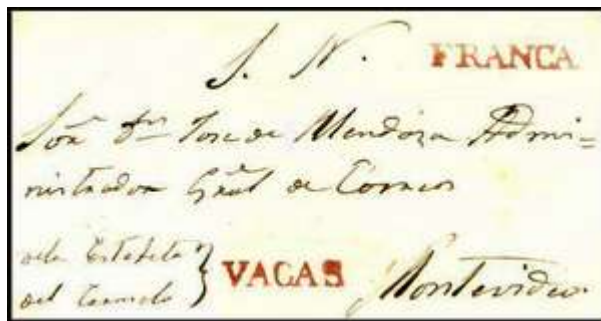 S. N. FRANCA
Sor. Dn. Jose de Mendoza Admi=
nistrador Gral de Correos
dela Estafeta
del Carmelo } VACAS Montevideo